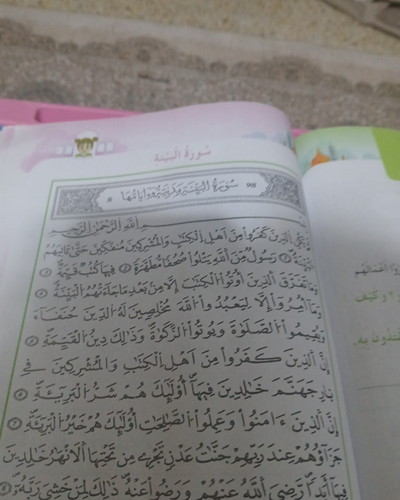 سُورَةُ البَيِّنَة
98 سُورَةُ البَيِّنَةِ مَدَنِيَّةٌ وَآيَاتُهَا 8
بِسْمِ اللَّهِ الرَّحْمَٰنِ الرَّحِيمِ
لَمْ يَكُنِ الَّذِينَ كَفَرُوا مِنْ أَهْلِ الْكِتَابِ وَالْمُشْرِكِينَ مُنفَكِّينَ حَتَّىٰ تَأْتِيَهُمُ
الْبَيِّنَةُ ١ رَسُولٌ مِّنَ اللَّهِ يَتْلُوا صُحُفًا مُّطَهَّرَةً ٢ فِيهَا كُتُبٌ قَيِّمَةٌ ٣
وَمَا تَفَرَّقَ الَّذِينَ أُوتُوا الْكِتَابَ إِلَّا مِن بَعْدِ مَا جَاءَتْهُمُ الْبَيِّنَةُ ٤
وَمَا أُمِرُوا إِلَّا لِيَعْبُدُوا اللَّهَ مُخْلِصِينَ لَهُ الدِّينَ حُنَفَاءَ
وَيُقِيمُوا الصَّلَوٰةَ وَيُؤْتُوا الزَّكَوٰةَ وَذَٰلِكَ دِينُ الْقَيِّمَةِ ٥
إِنَّ الَّذِينَ كَفَرُوا مِنْ أَهْلِ الْكِتَابِ وَالْمُشْرِكِينَ فِي
نَارِ جَهَنَّمَ خَالِدِينَ فِيهَا أُولَٰئِكَ هُمْ شَرُّ الْبَرِيَّةِ ٦
إِنَّ الَّذِينَ ءَامَنُوا وَعَمِلُوا الصَّالِحَاتِ أُولَٰئِكَ هُمْ خَيْرُ الْبَرِيَّةِ ٧
جَزَاؤُهُمْ عِندَ رَبِّهِمْ جَنَّاتُ عَدْنٍ تَجْرِي مِن تَحْتِهَا الْأَنْهَارُ خَالِدِينَ
فِيهَا أَبَدًا رَّضِيَ اللَّهُ عَنْهُمْ وَرَضُوا عَنْهُ ذَٰلِكَ لِمَنْ خَشِيَ رَبَّهُ ٨